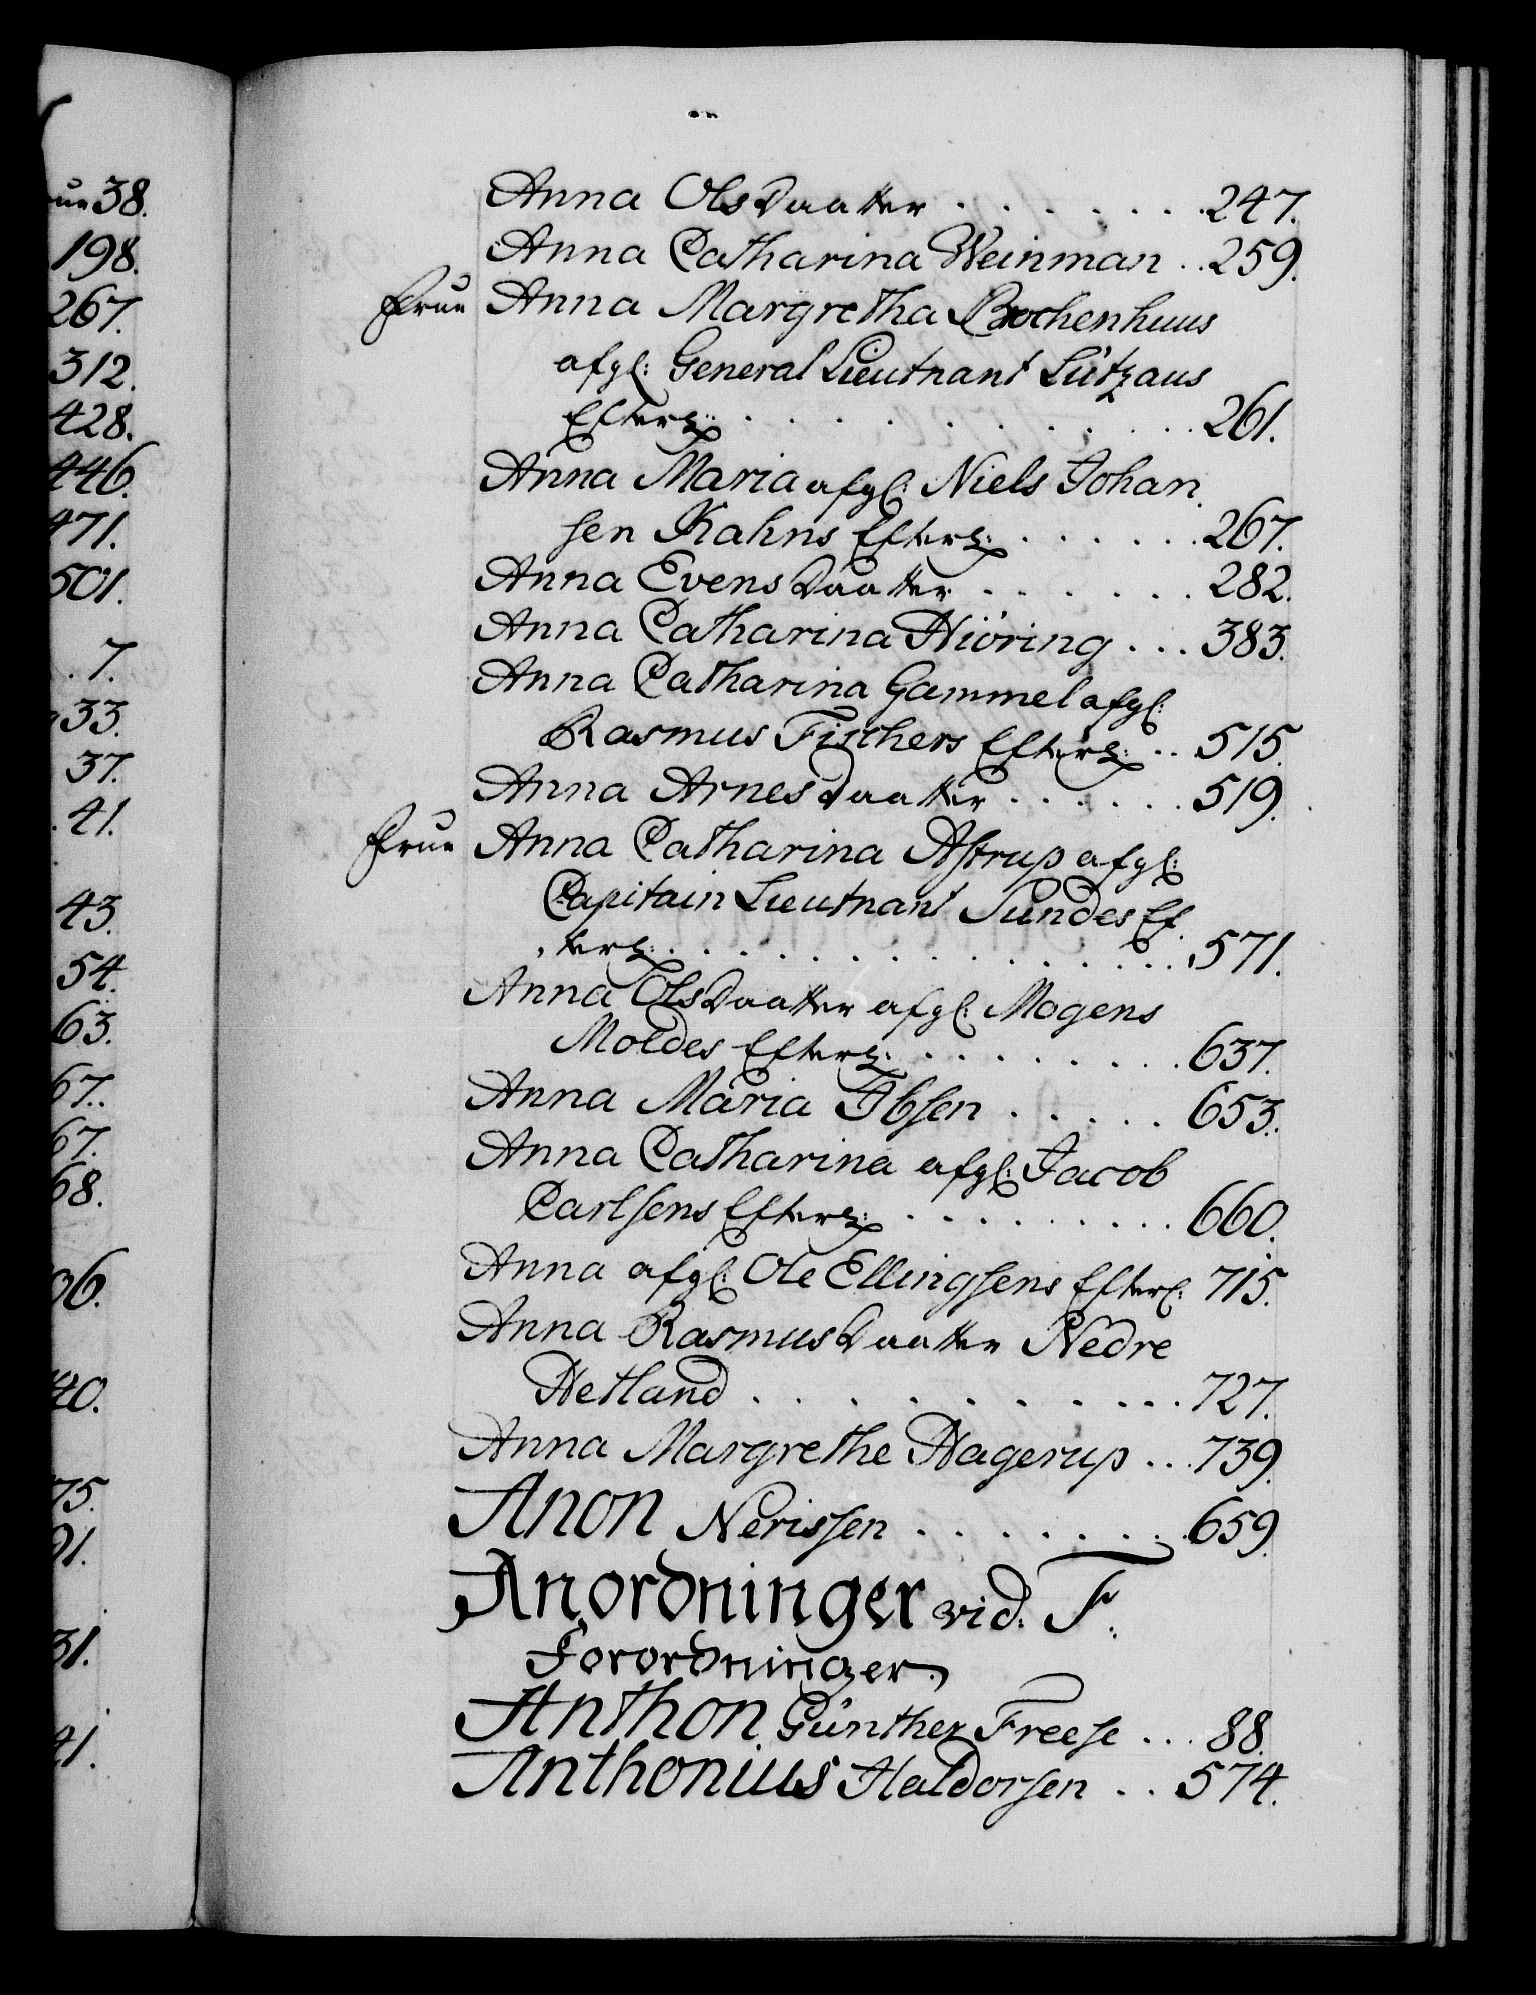 ue 38.
198.
267.
312.
428.
446.
471.
501.
. 7.
33.
37.
. 41.
43.
54.
63.
67.
67.
68.
06.
40.
75.
91.
31.
41.
Anna OlsDaatter . . . . . . . 247.
Anna Catharina Weinman . . 259.
Frue Anna Margretha Brochenhuus
afgl: General Lieutnant Lützaus
Efterl: . . . . . . . . . . 261.
Anna Maria afgl: Niels Johan
sen Kahns Efterl: . . . . . . 267.
Anna EvensDaatter . . . . . . 282.
Anna Catharina Hiöring . . . 383.
Anna Catharina Gammel afgl:
Rasmus Fischers Efterl: . . 515.
Anna ArnesDaatter . . . . . . 519.
Frue Anna Catharina Astrup afgl:
Capitain Lieutnant Sundes Ef
terl: . . . . . . . . . . . . . . 571.
Anna OlsDaatter afgl: Mogens
Moldes Efterl: . . . . . . . . . 637.
Anna Maria Ibsen . . . . . 653.
Anna Catharina afgl: Jacob
Carlsens Efterl: . . . . . . . . . 660.
Anna afgl: Ole Ellingsens Efterl: 715.
Anna RasmusDaatter Nedre
Hetland . . . . . . . . . . 727.
Anna Margrethe Hagerup . . . 739.
Anon Nerissen . . . . . . . . 659.
Anordninger vid: F.
Forordninger.
Anthon Günther Freese . . . 88.
Anthonius Haldorsen . . 574.